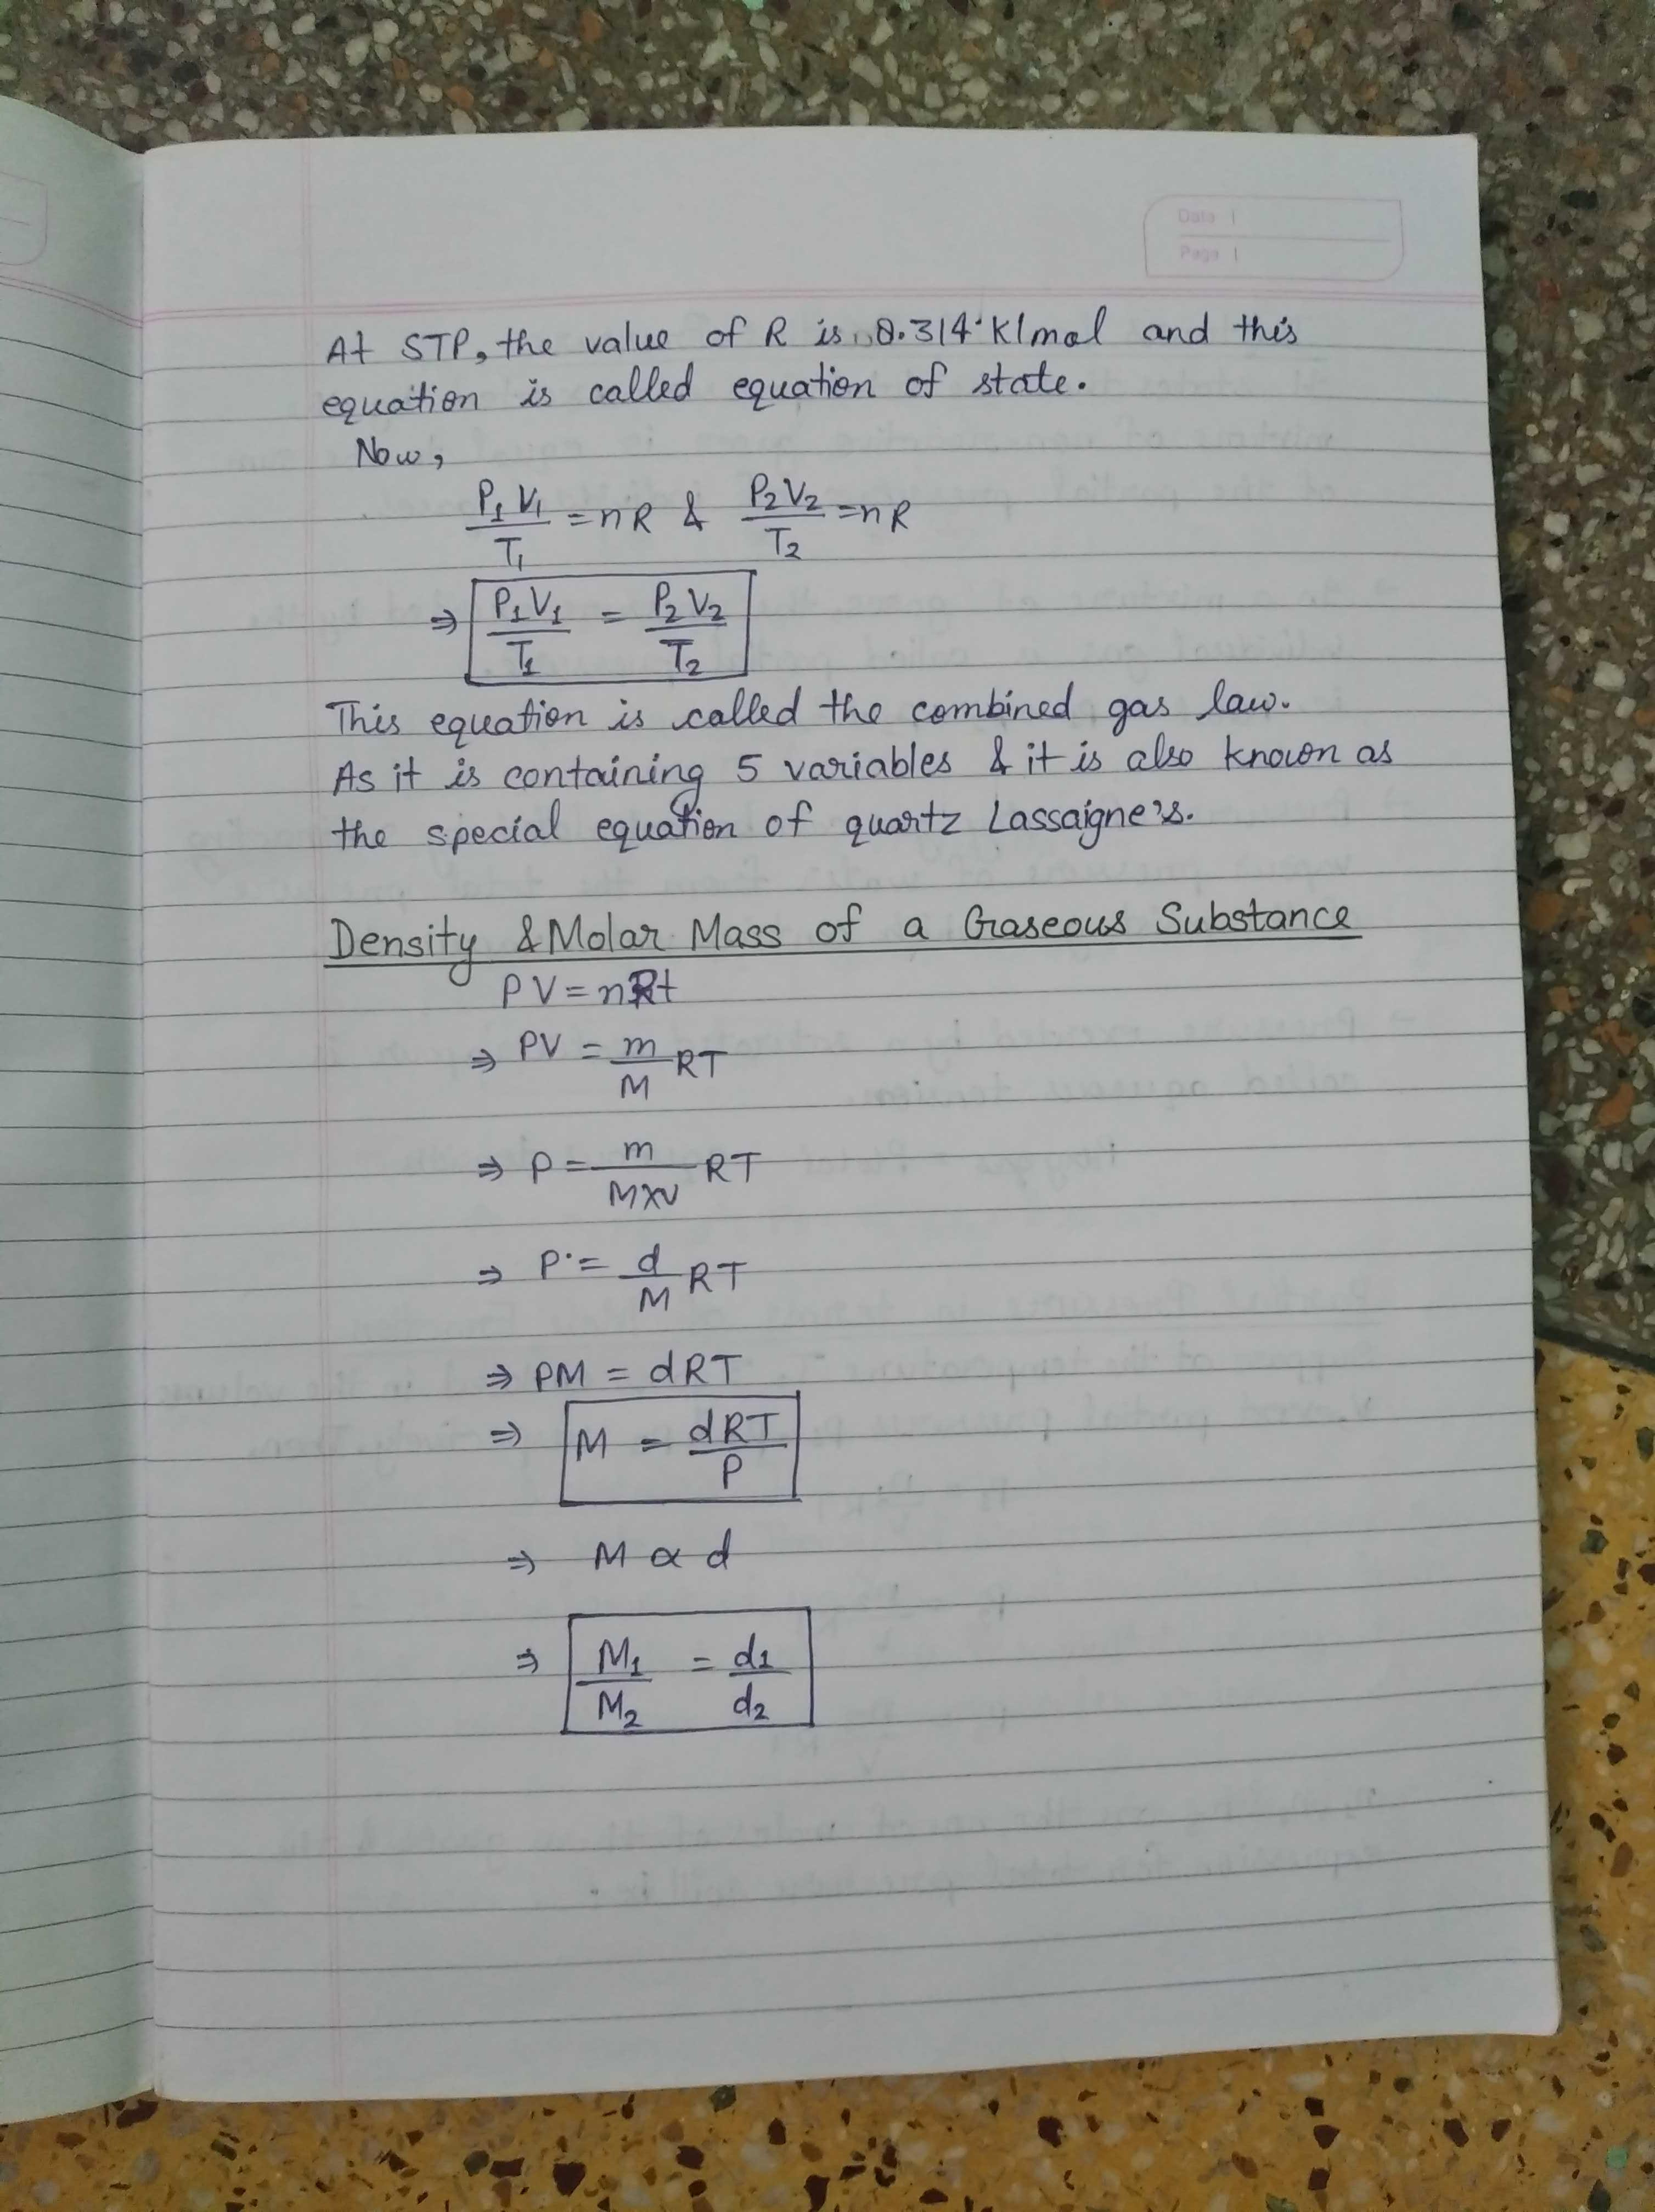 Date |
Page |
At STP, the value of R is 8.314 K/mol and this
equation is called equation of state.
Now,
P₁V₁/T₁ = nR & P₂V₂/T₂ = nR
⇒ P₁V₁/T₁ = P₂V₂/T₂
This equation is called the combined gas law.
As it is containing 5 variables & it is also known as
the special equation of quartz Lassaigne's.
Density & Molar Mass of a Gaseous Substance
PV = nRt
⇒ PV = m/M RT
⇒ P = m/M×V RT
⇒ P = d/M RT
⇒ PM = dRT
⇒ M = dRT/P
⇒ M ∝ d
⇒ M₁/M₂ = d₁/d₂